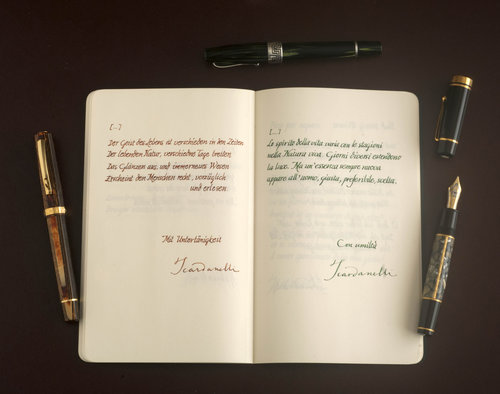 [...]
Der Geist des Lebens ist verschieden in den Zeiten
Der lebenden Natur, verschiedne Tage breiten
Das Glänzen aus, und immerneues Wesen
Erscheint den Menschen recht, vorzüglich
und erlesen.
Mit Untertänigkeit
Scardanelli
[...]
Lo spirito della vita varia con le stagioni
nella Natura viva. Giorni diversi estendono
la luce. Ma un'essenza sempre nuova
appare all'uomo, giusta, preferibile, scelta.
Con umiltà
Scardanelli